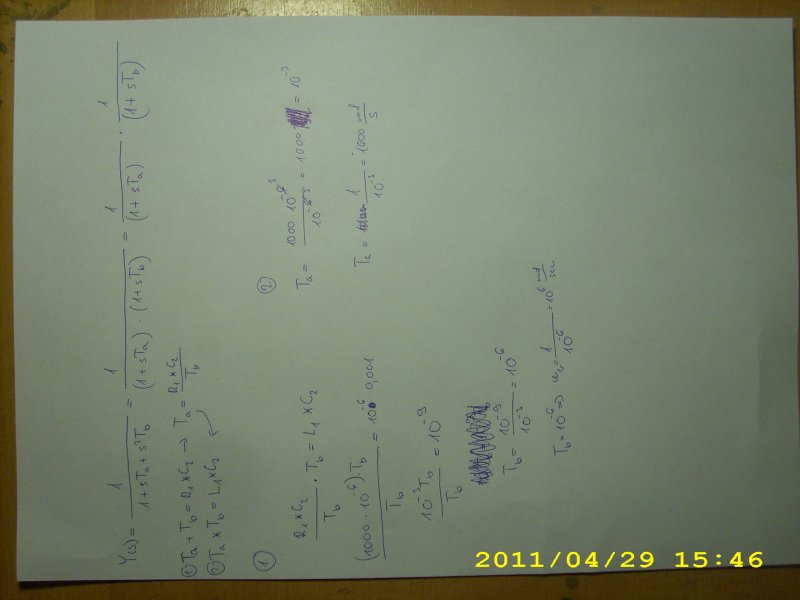 Y(s) = 1 / (1 + sTa + s²Tb) = 1 / ((1 + sTa) · (1 + sTb)) = 1 / (1 + sTa) · 1 / (1 + sTb)
① Ta + Tb = R1 * C2 → Ta = R1 * C2 / Tb
② Ta * Tb = L1 * C2
①
R1 * C2 / Tb · Tb = L1 * C2
(1000 · 10⁻⁶) · Tb / Tb = 10⁻⁶ · 0,001
10⁻³ Tb / Tb = 10⁻⁹
Tb = 10⁻⁹ / 10⁻³ = 10⁻⁶
Tb = 10⁻⁶ ⇒ = 1 / 10⁻⁶ = 10⁶ rad / sec
②
Ta = = 1000 = 10⁻³
Ta = 1 / 10⁻³ = 1000 rad / s
2011/04/29 15:46